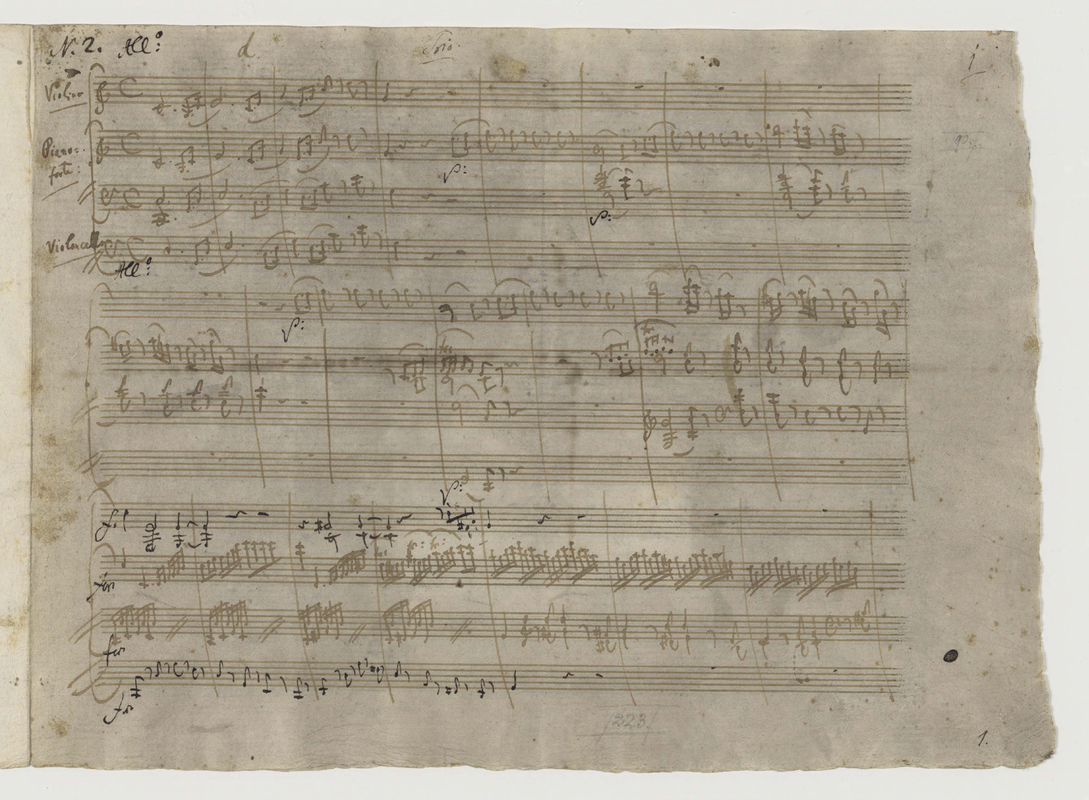 N. 2. All:o d Trio. 1
Violino
Piano:
forte:
p:
p:
Violoncello
All:o
p:
p:
for
for
for
for
[223]
1.